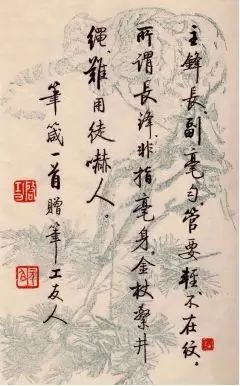 主鋒長副毫勻，管要輕不在紋。
所謂長鋒非指毫身，金杖繫井
繩，難用徒嚇人。
筆箴一首贈筆工友人